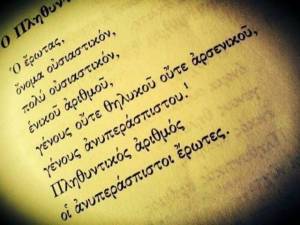 Ὁ Πληθυντι
Ὁ ἔρωτας,
ὄνομα οὐσιαστικόν,
πολύ οὐσιαστικόν,
ἑνικοῦ ἀριθμοῦ,
γένους οὔτε θηλυκοῦ οὔτε ἀρσενικοῦ,
γένους ἀνυπεράσπιστου!
Πληθυντικός ἀριθμός
οἱ ἀνυπεράσπιστοι ἔρωτες.